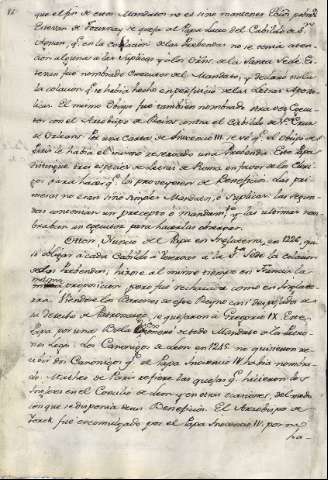 que el fin de estos Mandatos no es sino mantener
Estevan de Tournay se quejó al Papa Lucio del Cabildo de Sn.
Agnan, qe. en la colación de las Prebendas no se tenia aten-
cion alguna a las Suplicas y a los Ordenes de la Santa Sede. Es-
tevan fue nombrado Executor del Mandato, y declaró nula
la colacion qe. se habia hecho en perjuicio de las Letras Aposto-
licas. El mismo Obispo fue tambien nombrado otra vez Execu-
tor con el Arzobispo de Bourges contra el Cabildo de Sta. Cruz
de Orleans. Por una Carta de Inocencio III. se vé qe. el Obispo de
París le habia el mismo reservado una Prebenda. Este Papa
distingue tres especies de Letras de Roma en favor de los Cleri-
gos para hacer qe. los proveyesen de Beneficios. Las pri-
meras no eran sino simples Mandatos, o Suplicas: las segun-
das contenian un precepto o mandato, y las ultimas nom-
braban un executor para hacerlas obedecer.
Otton Nuncio del Papa en Inglaterra, en 1226, qui-
so obligar a cada Cabildo a reservar a la Sta. Sede la colacion
de dos Prebendas, hizose al mismo tiempo en Francia la
misma proposicion pero fue rechazada como en Inglater-
ra. Viendose los Barones de este Reyno casi despojados de
su derecho de Patronazgo, se quejaron a Gregorio IX. Este
Papa por una Bula eximió de todo Mandato a los Patro-
nos Legos. Los Canonigos de Leon en 1245. no quisieron re-
cibir dos Canonigos qe. el Papa Inocencio IV. habia nombra-
do. Matheo de Paris refiere las quejas qe. hicieron los
Ingleses en el Concilio de Leon y en otras ocasiones, del modo
con que se disponia de sus Beneficios. El Arzobispo de
Yorck fue excomulgado por el Papa Inocencio IV. por no
ha-